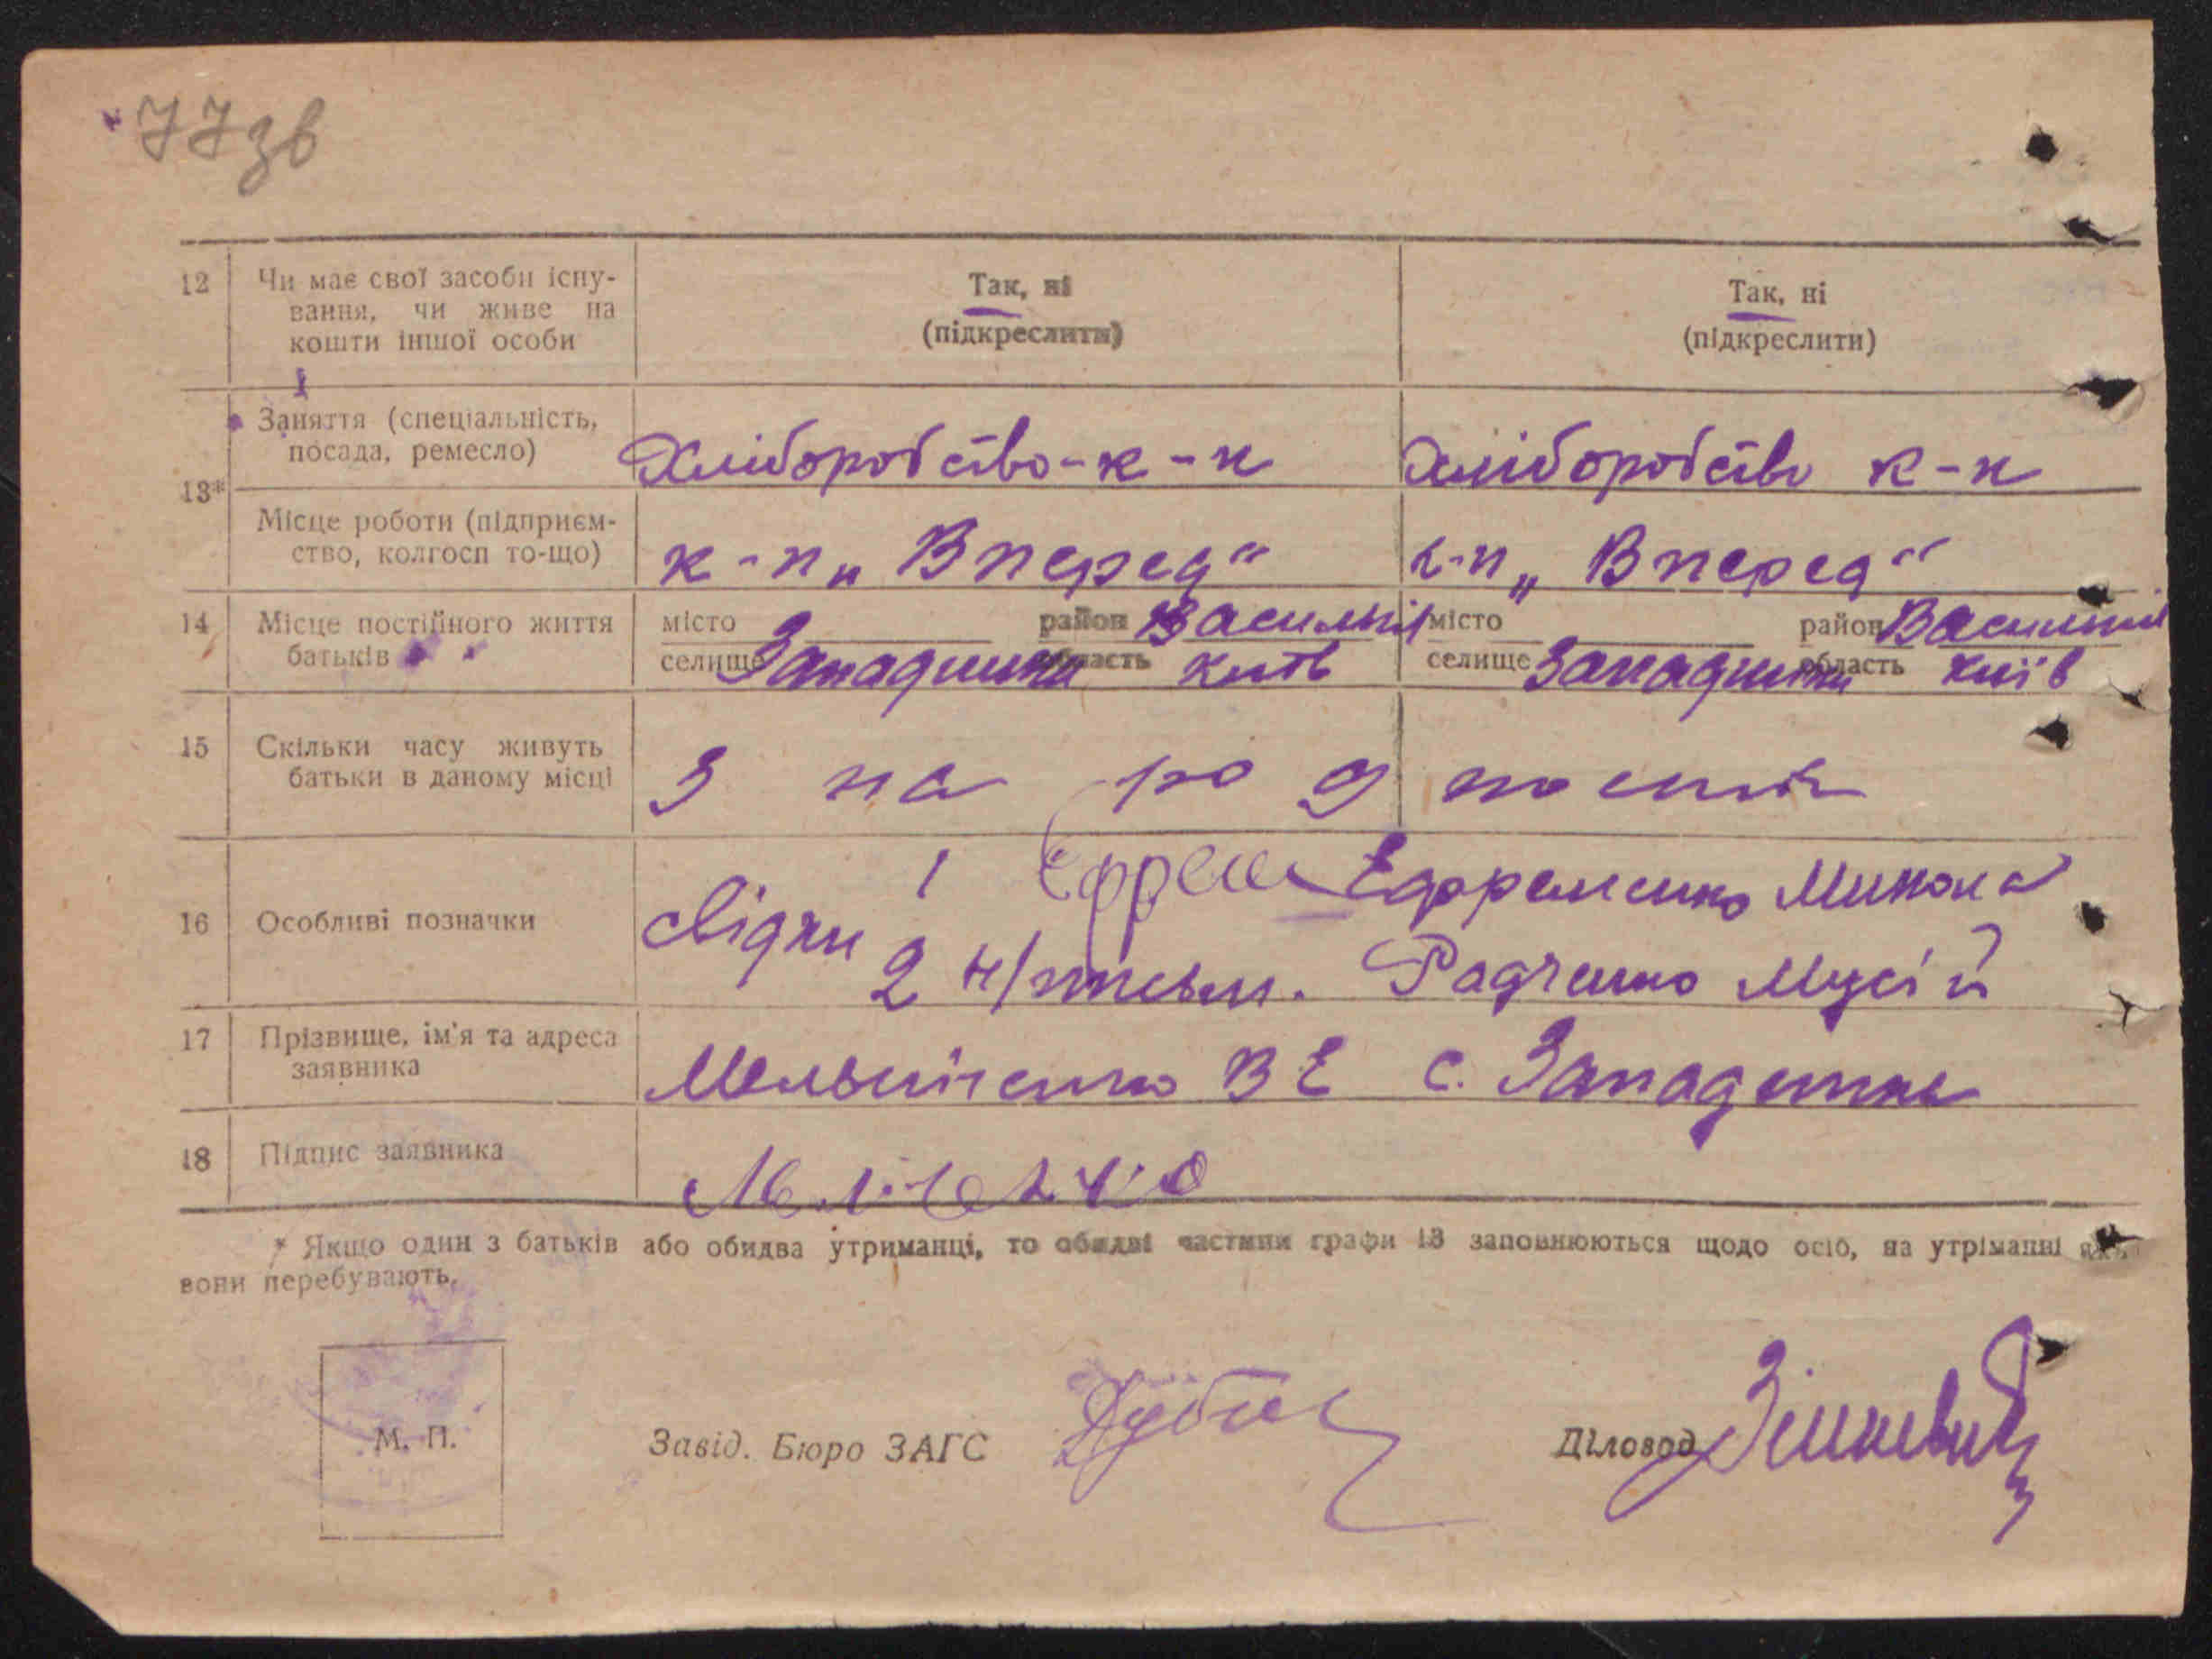 77зв
12 Чи має свої засоби існу-
вання, чи живе на
кошти іншої особи
Так, ні
(підкреслити)
Так, ні
(підкреслити)
13*
Заняття (спеціальність,
посада, ремесло)
Хліборобство - к - к
Хліборобство к - к
Місце роботи (підприєм-
ство, колгосп то-що)
к - п „Вперед“
к-п „Вперед“
14 Місце постійного життя
батьків
місто район Васильків
селище Западинка область Київ
місто район Васильків
селище Западинка область Київ
15 Скільки часу живуть
батьки в даному місці
З на род
16 Особливі позначки
Свідки 1 Ефрем Ефременко Микола
2 Радченко Мусій
17 Прізвище, ім'я та адреса
заявника
Мельниченко В Е с. Западинка
18 Підпис заявника
* Якщо один з батьків або обидва утриманці, то обидві частини графи 13 заповнюються щодо осіб, на утріманні яких
вони перебувають.
М. П.
Завід. Бюро ЗАГС
Діловод